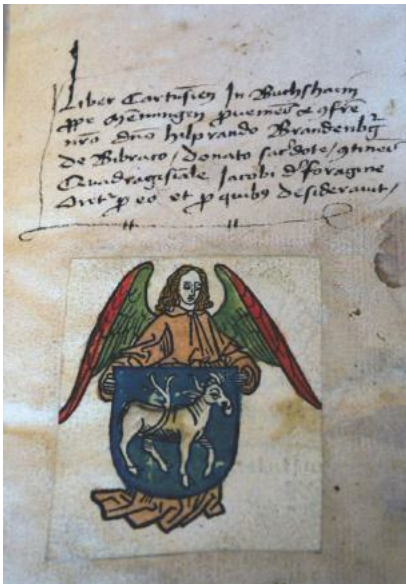 Liber Cartusien̄ In Buchshaim
ꝓpe Mēmingen ꝓueniēs a ꝯfrē
nr̄o dn̄o hilprando Brandenbg̃
de Bibraco / donato sac̄dote / ꝯtinēs
Quadragesiale Jacobi d̄ foragine
Oret' ꝓ eo et ꝓ quibus desiderauit /